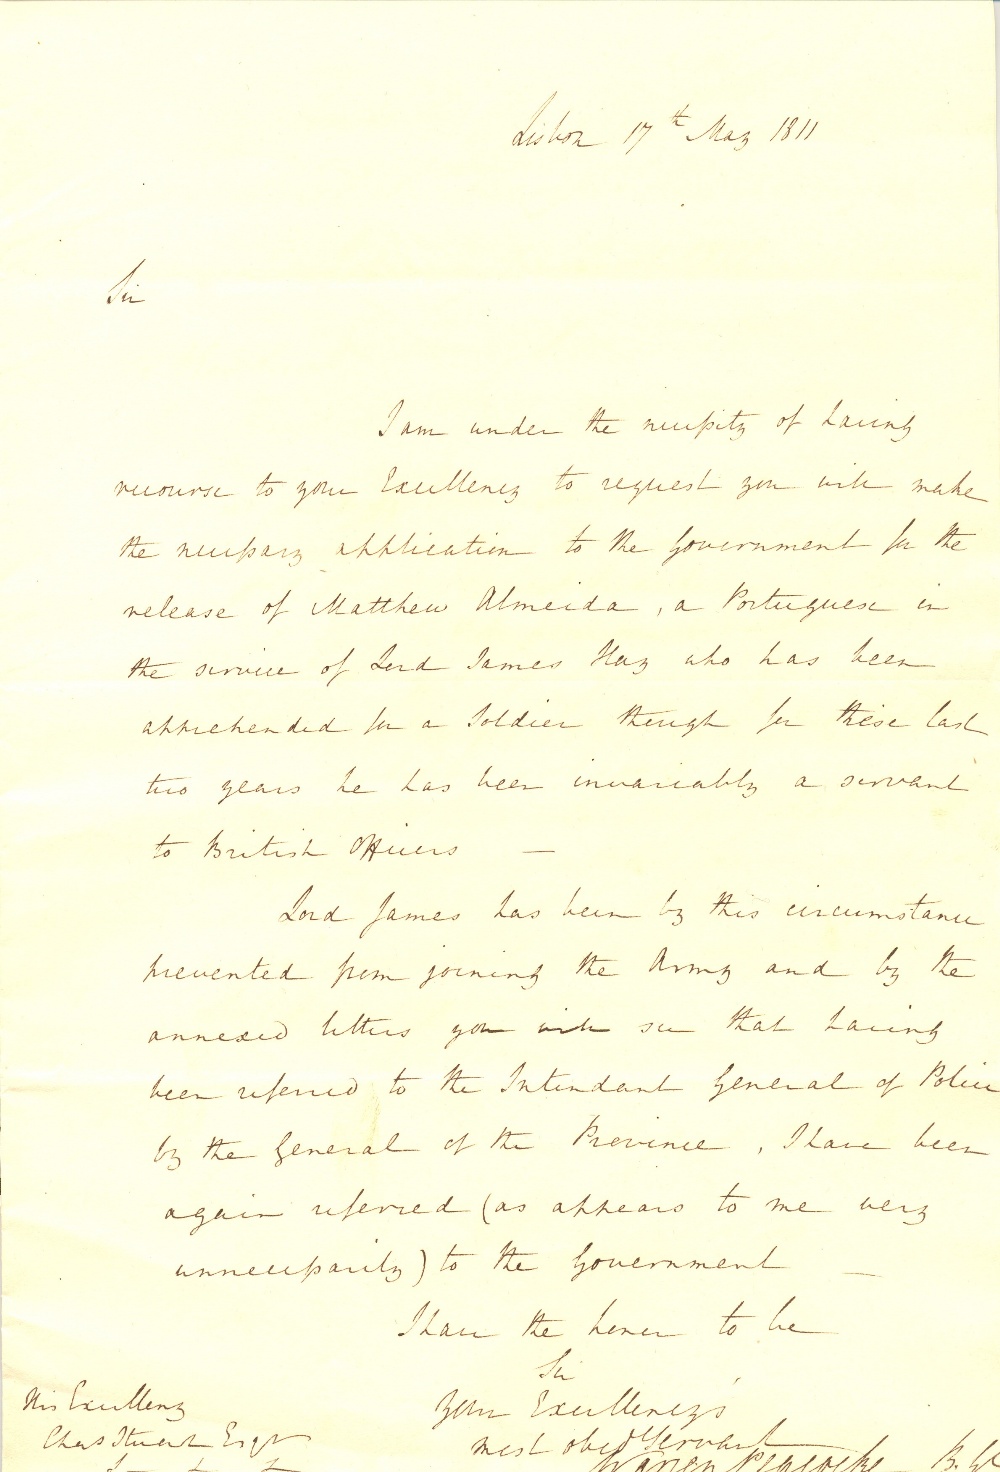 Lisbon 17th May 1811
Sir
I am under the necessity of having
recourse to your Excellency to request you will make
the necessary application to the Government for the
release of Matthew Almeida, a Portuguese in
the service of Lord James Hay who has been
apprehended for a Soldier though for these last
two years he has been invariably a servant
to British Officers —
Lord James has been by this circumstance
prevented from joining the Army and by the
annexed letters you will see that having
been referred to the Intendant General of Police
by the General of the Province, I have been
again referred (as appears to me very
unnecessarily) to the Government —
I have the honor to be
Sir
Your Excellency's
most obedt Servant
Warren Peacocke B. Gl
His Excellency
Chas Stuart Esqr